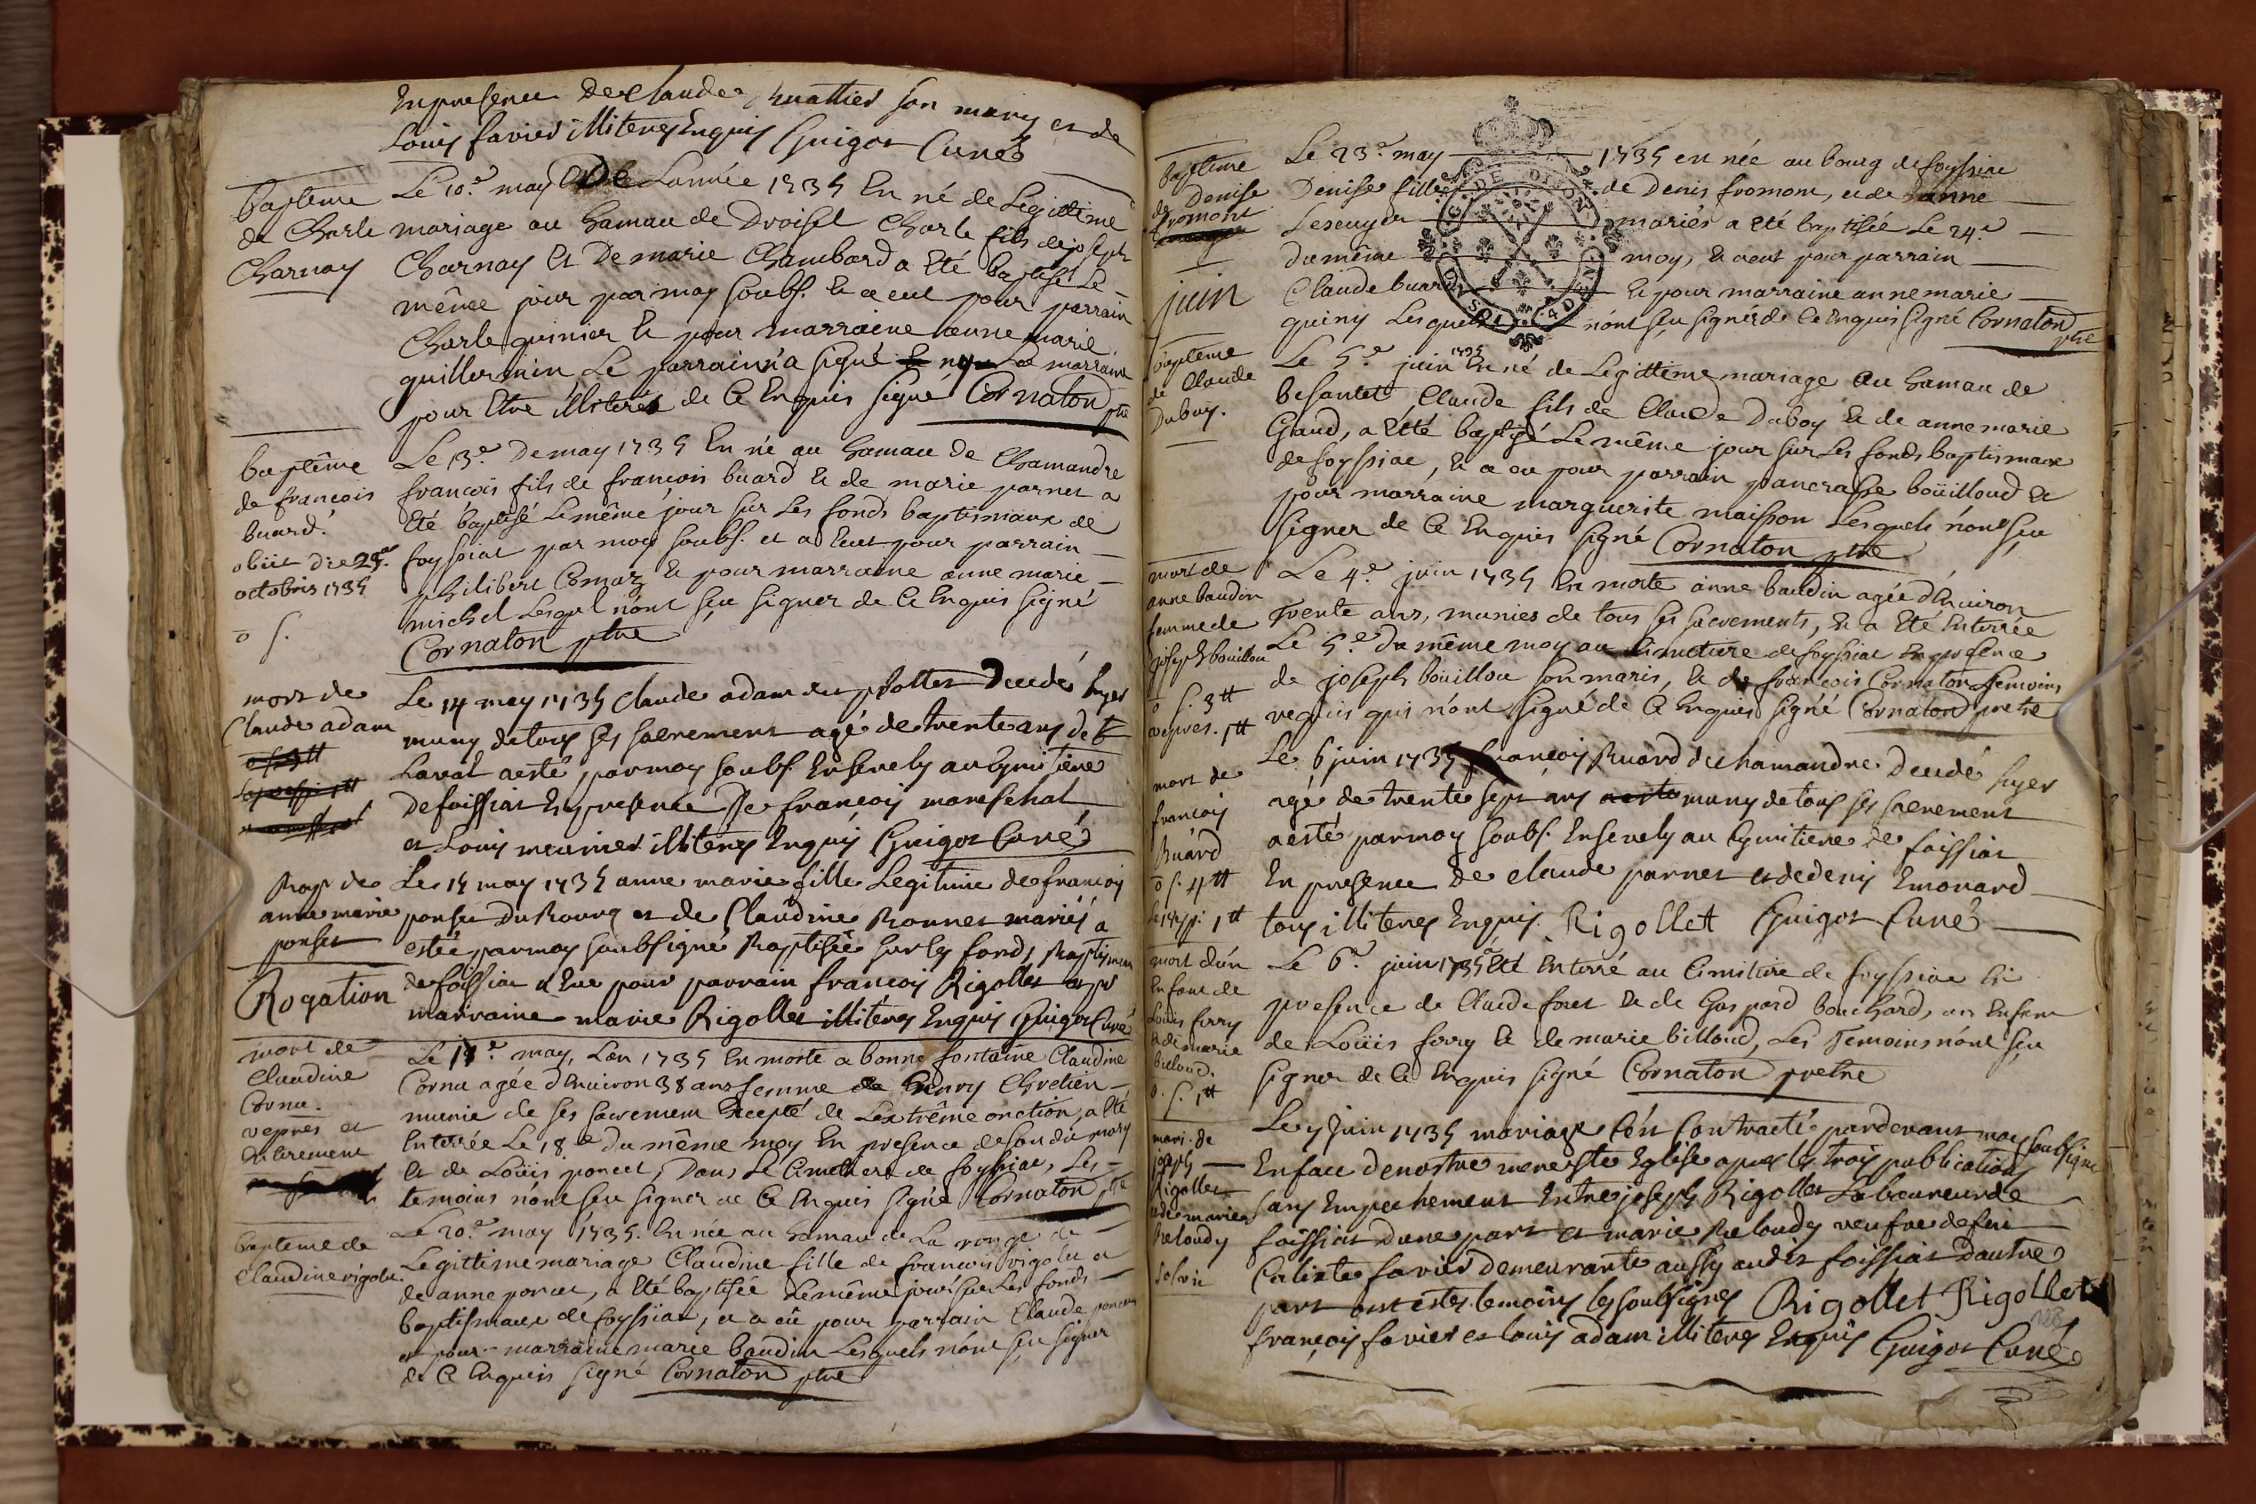 En presence De Claude Chuattier son mary et de
Louis favier illiteres Enquis Guigot Curé
baptême
de Charle
Charnay
Le 10.e may De Lannée 1735 En né de Legittime
mariage au hamau de Droisel Charle fils de joseph
Charnay Et De marie Chambard a Eté baptisé Le
même jour par moy soubs. Et a eut pour parrain
Charle quinier Et pour marraine anne marie
guillermin Le parrain a signé La marraine
pour Etre illiteré de Ce Enquis signé Cornaton ptre
baptême
de francois
buard.
obiit die 29.a
octobris 1735
Le 13.e De may 1735 En né au hamau de Chamandre
francois fils de francois buard Et de marie parnet a
Eté baptisé Le même jour sur Les fonds baptismaux de
foyssiat par moy soubs. et a Eut pour parrain
philibert Comaz Et pour marraine anne marie
michel Lesquel n'ont sçu signer de Ce Enquis signé
Cornaton ptre
mort de
Claude adam
Le 14 may 1735 Claude adam des Decedé hyer
muny de tous ses sacrement agé de trente ans de
Laval a esté par moy soubs. Ensevely au Cymitiere
de foissiat En presence De francois mareschal
et Louis meunier illiteres Enquis Guigot Curé
Bap de
anne marie
ponset
Le 15 may 1735 anne marie fille Legitime de francois
ponset Du Bourg et de Claudine Bonnet mariés a
estée par moy soubsigné Baptisée sur les fonds Baptismau
de foissiat a Eue pour parrain francois Rigollet et pr
marraine marie Rigollet illiteres Enquis Guigot Curé
Rogation
mort de
Claudine
Cornu.
vepres et
enterement
Le 18.e may, Lan 1735 En morte a bonne fontaine Claudine
Cornu agée d'Environ 38 ans femme de henry Chretien
munie de ses sacremens Excepté de Lextrême onction, a Eté
Enterrée Le 18.e du même moy En presence de son dit mary
Et de Loüis poncet, Dans Le Cimetiere de foyssiat, Les
temoins n'ont sçu signer de Ce Enquis signé Cornaton ptre
baptême de
Claudine rigolet.
Le 20.e may 1735. En née au hamau de La ronge de
Legittime mariage Claudine fille de francois rigolet et
de anne poncet, a Eté baptisée Le même jour sur Les fonds
baptismaux de foyssiat, et a eü pour parrain Claude poncet
et pour marraine marie baudin Lesquels n'ont sçu signer
de Ce Enquis signé Cornaton ptre
baptême
de Denise
fromont
Le 23.e may 1735 en née au bourg de foyssiat
Denise fille de Denis fromont, et de anne
Lescuyer mariés a Eté baptisée Le 24.e
du même moy, Et a eut pour parrain
Claude buard Et pour marraine anne marie
quiny Lesquels n'ont sçu signer de Ce Enquis signé Cornaton ptre
G. DE DIJON
juin
baptême
de Claude
Duboy.
Le 5.e juin 1735 En né de Legittime mariage au hamau de
besantet Claude fils de Claude Duboy Et de anne marie
Gaud, a Eté baptisé Le même jour sur Les fonds baptismaux
de foyssiat, Et a eu pour parrain pancrasse boüilloud Et
pour marraine marguerite maisson Lesquels n'ont sçu
signer de Ce Enquis signé Cornaton ptre
mort de
anne baudin
femme de
joseph boüillou
o s. 3tt
vepres. 1tt
Le 4.e juin 1735 En morte anne baudin agée d'Environ
trente ans, munies de tous ses sacrements, Et a Eté Enterrée
Le 5.e du même moy au Cimetiere de foyssiat En presence
de joseph boüillou son maris, Et de francois Cornaton temoins
requis qui n'ont signé de Ce Enquis signé Cornaton pretre
mort de
francois
Buard
o s. 4tt
Le 6 juin 1735 francois Buard de chamandre Decedé hyer
agé de trente sept ans muny de tous ses sacrement
a esté par moy soubs. Ensevely au Cymitiere de foissiat
En presence De claude parnet et de denis Emonard
tous illiteres Enquis. Rigollet Guigot Curé
mort d'un
Enfant de
Loüis forry
et de marie
billoud.
o. s. 1tt
Le 6.e juin 1735 a Eté Enterré au Cimitiere de foyssiat En
presence de Claude foret Et de Gaspard bouchard, un Enfant
de Loüis forry Et de marie billoud, Les Temoins n'ont sçu
signer de Ce Enquis signé Cornaton pretre
mari. de
joseph
Rigollet
et de marie
Beloudy
Le 7 Juin 1735 mariage s'est Contracté pardevant moy soubsigné
En face de nostre mere ste Eglise apres les trois publications
sans Empechement Entre joseph Rigollet Laboureur de
foissiat d'une part et marie Beloudy veufve de feu
Calixte favier demeurante aussy audit foissiat d'autre
part temoins les soubsignes Rigollet Rigollet
francois favier et louis adam illiteres Enquis Guigot Curé